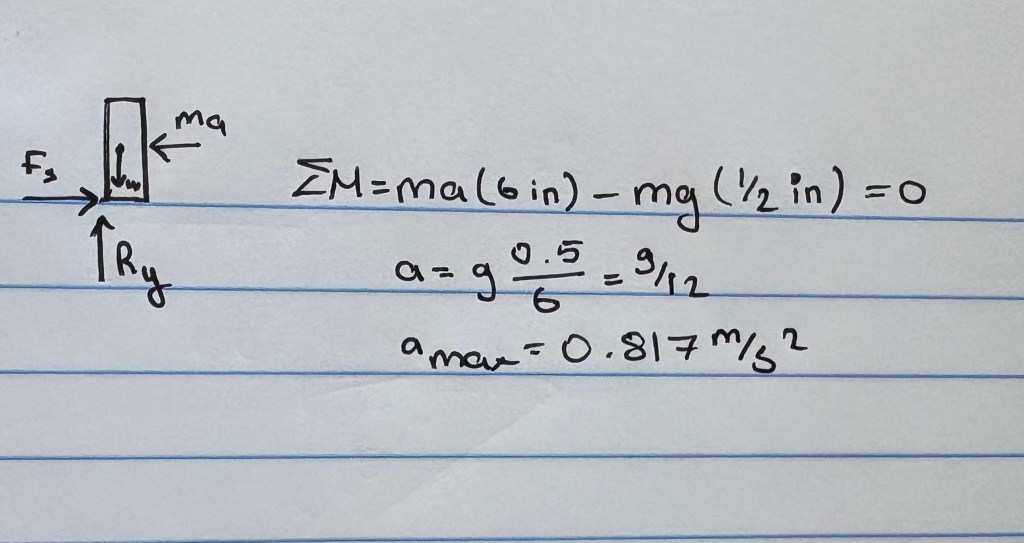 ma
Fs
w
Ry
ΣM = ma (6 in) - mg (1/2 in) = 0
a = g 0.5/6 = g/12
amax = 0.817 m/s²